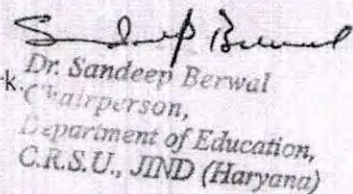 Sandeep Berwal
Dr. Sandeep Berwal
k.
Chairperson,
Department of Education,
C.R.S.U., JIND (Haryana)